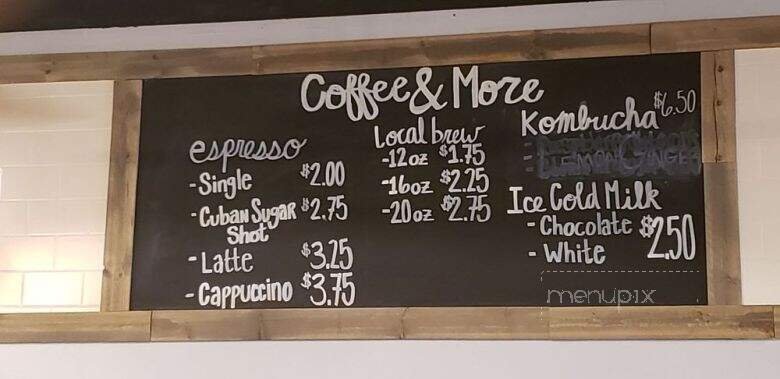 Coffee & More
espresso
- Single $2.00
- Cuban Sugar Shot $2.75
- Latte $3.25
- Cappuccino $3.75
Local brew
- 12 oz $1.75
- 16 oz $2.25
- 20 oz $2.75
Kombucha $6.50
Ice Cold Milk
- Chocolate $2.50
- White
menupix